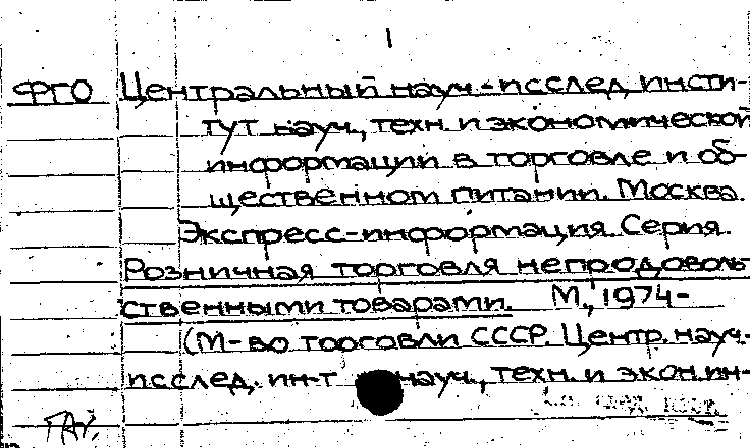 1
ФГО Центральный науч.-исслед. инсти-
тут науч., техн. и экономической
информации в торговле и об-
щественном питании. Москва.
Экспресс-информация. Серия.
Розничная торговля непродоволь-
ственными товарами. М., 1974-
(М-во торговли СССР. Центр. науч.-
исслед. ин-т науч., техн. и экон. ин-
См. след. карт.